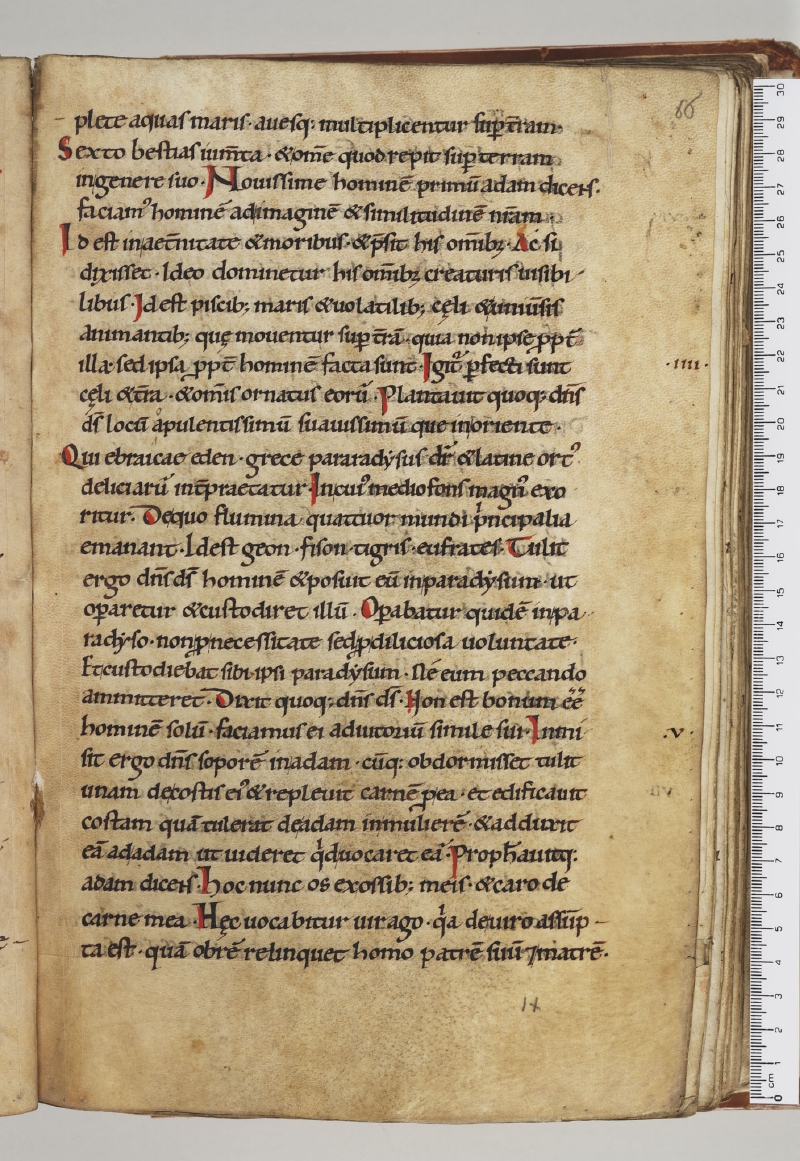 86
plete aquas maris · auesq; multiplicentur sup̄ t̄ram
Sexto bestias ium̄ta · & om̄e quod repit sup̄ terram
in genere suo · Nouissime hominē primū adam dicens.
faciam᾽ hominē ad imaginē & similitudinē nr̄am ·
Id est in aet̄nitate & moribus · & p̄sit his om̄ib; Ac si
dixisset · Ideo dominetur his om̄ib; creaturis uisibi
libus · Id est piscib; maris & uolatilib; cęli & uniu̅sis
animantib; quę mouentur sup̄ t̄rā · quia non ipse ꝓpt̄
illa · sed ipsa ꝓpt̄ hominē facta sunt · Igit᾽ ꝑfecti sunt
· IIII ·
cęli & t̄ra · & om̄is ornatus eorū · Plantauit quoq; dn̄s
ds̄ locū apulentissimū suauissimū que in oriente ·
Qui ebraicae eden · grece pararadẏsus dr̄ & latine ort᾽
deliciarū int̄praetatur · In cui᾽ medio fons magn᾽ exo
ritur · De quo flumina quattuor mundi pͥncipalia
emanant · Id est geon · fison · tigris · eufrates · Tulit
ergo dn̄s ds̄ hominē & posuit eū in paradẏsum · ut
oꝑaretur & custodiret illū · Oꝑabatur quidē in pa
radẏso · non ꝓ necessitate sed ꝓ diliciosa uoluntate ·
Et custodiebat sibi ipsi paradẏsum · ne eum peccando
ammitteret · Dixit quoq; dn̄s ds̄ · Non est bonum ee̅
hominē solū · faciamus ei adiutoriū simile sui · Inmi
· V ·
sit ergo dn̄s soporē in adam · cūq; obdormisset tulit
unam de costis ei᾽ & repleuit carnē ꝓ ea · et edificauit
costam quā tulerat de adam in mulierē · & adduxit
eā ad adam ut uideret qͥd uocaret eā · Proph̄auitq;
adam dicens · Hoc nunc os ex ossib; meis · & caro de
carne mea · Hęc uocabitur uirago · qͥa de uiro assūp
ta est · quā obrē relinquet homo patrē suū ⁊ matrē ·